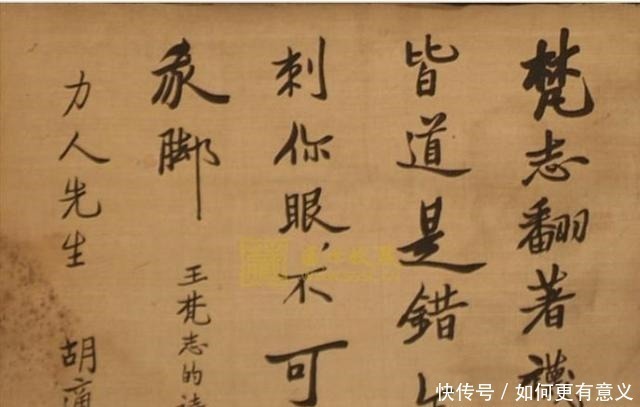 梵志翻著襪
皆道是錯
刺你眼,不可
我脚
王梵志的詩
力人先生 胡適
快传号/如何更有意义